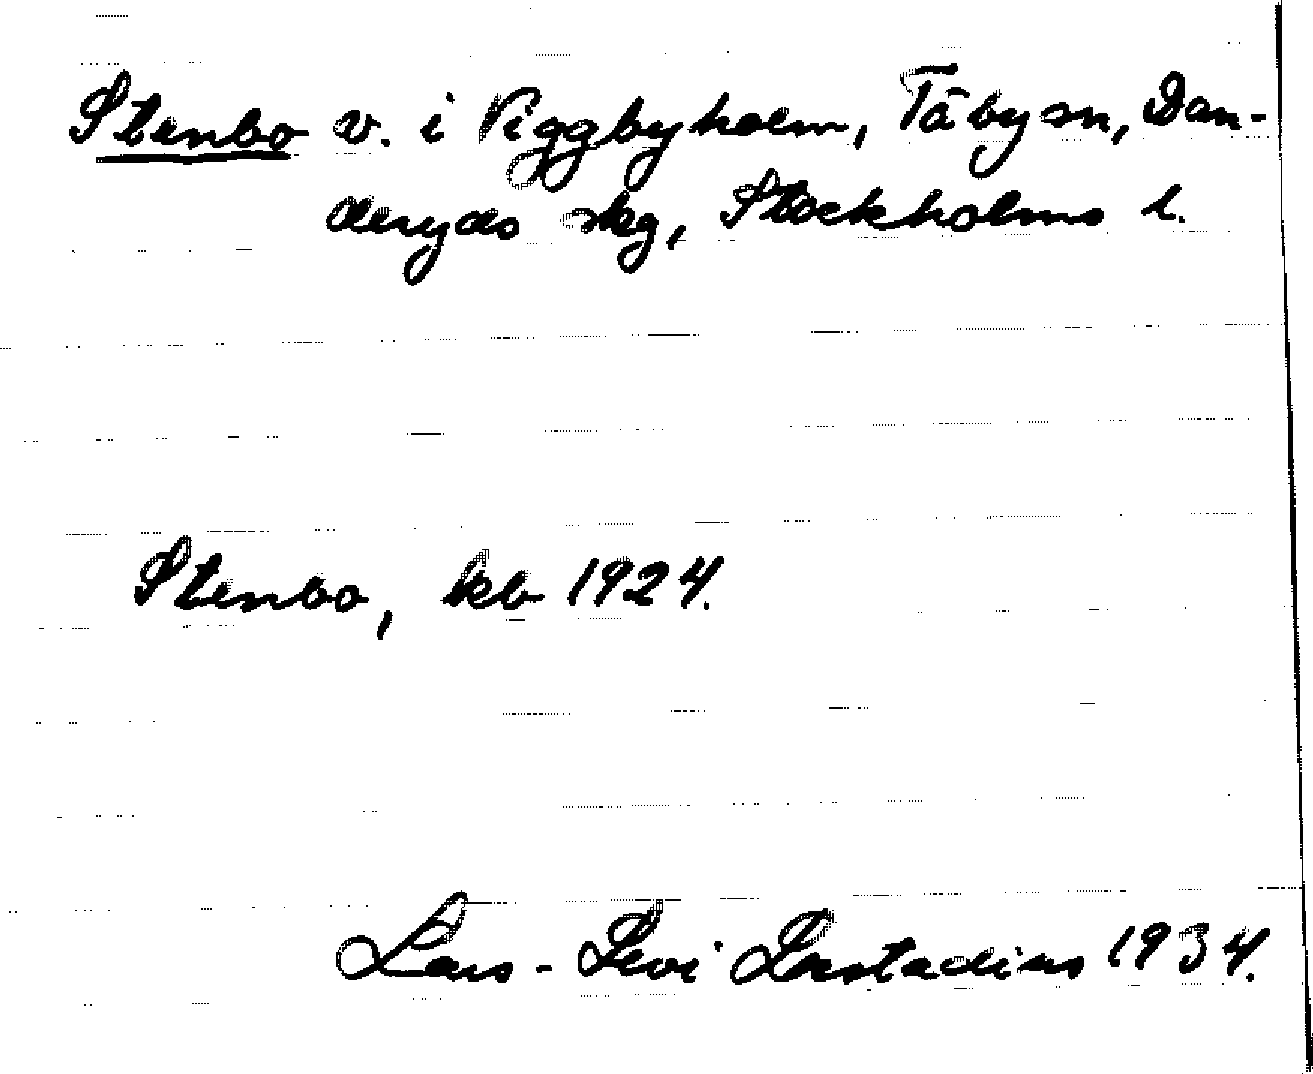 Stenbo v. i Viggbyholm, Täby sn, Dan-
deryds skg, Stockholms l.
Stenbo, kb 1924.
Lars-Levi Læstadius 1934.